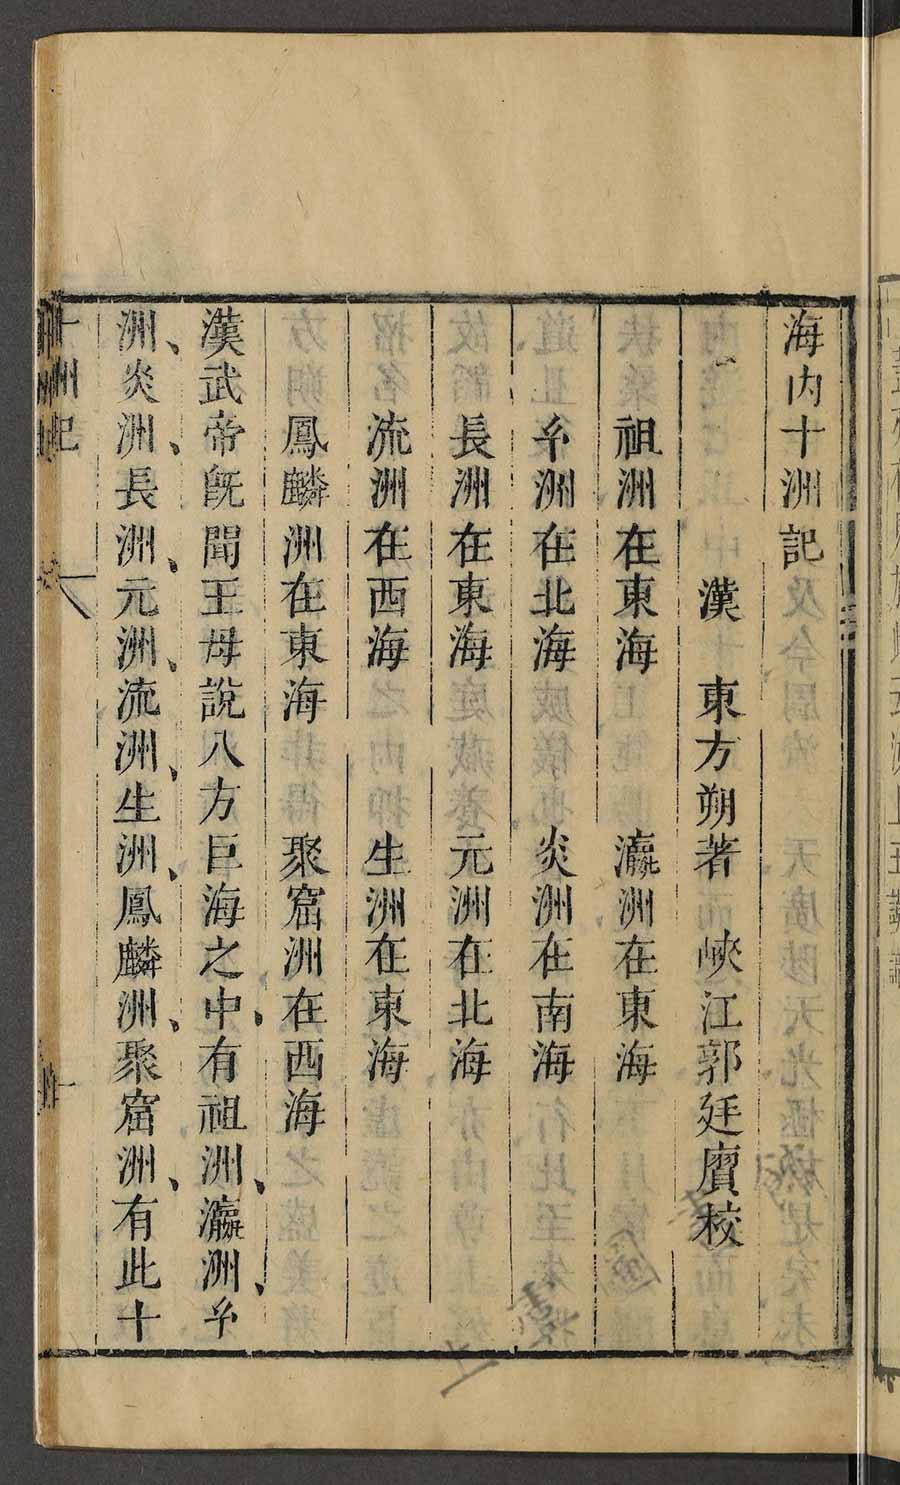 海内十洲記
漢　東方朔著　峽江郭廷賡校
祖洲在東海　瀛洲在東海
𤣥洲在北海　炎洲在南海
長洲在東海　元洲在北海
流洲在西海　生洲在東海
鳳麟洲在東海　聚窟洲在西海
漢武帝旣聞王母說八方巨海之中、有祖洲、瀛洲、𤣥
洲、炎洲、長洲、元洲、流洲、生洲、鳳麟洲、聚窟洲、有此十
十洲記